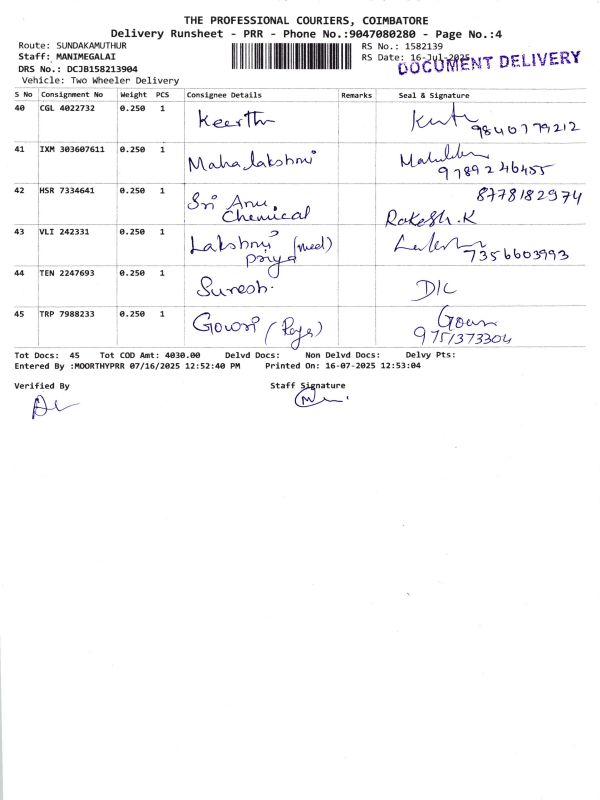 THE PROFESSIONAL COURIERS, COIMBATORE
Delivery Runsheet - PRR - Phone No.:9047080280 - Page No.:4
Route: SUNDAKAMUTHUR RS No.: 1582139
Staff: MANIMEGALAI RS Date: 16-Jul-2025
DOCUMENT DELIVERY
DRS No.: DCJB158213904
Vehicle: Two Wheeler Delivery
S No Consignment No Weight PCS Consignee Details Remarks Seal & Signature
40 CGL 4022732 0.250 1 Keerthi
9840179212
41 IXM 303607611 0.250 1 Mahalakshmi
9789246455
42 HSR 7334641 0.250 1 Sri Anu 8778182974
Chemical Rakesh.K
43 VLI 242331 0.250 1 Lakshmi (med)
priya 7356603993
44 TEN 2247693 0.250 1 Suresh. D/C
45 TRP 7988233 0.250 1 Gowri (Raja) Gowri
9751373304
Tot Docs: 45 Tot COD Amt: 4030.00 Delvd Docs: Non Delvd Docs: Delvy Pts:
Entered By :MOORTHYPRR 07/16/2025 12:52:40 PM Printed On: 16-07-2025 12:53:04
Verified By Staff Signature